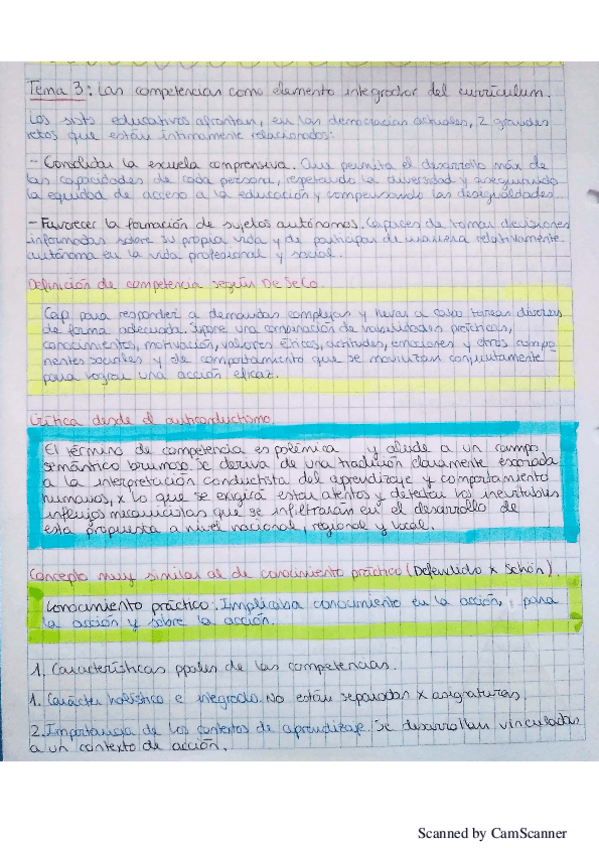 Tema 3: Las competencias como elemento integrador del currículum.
Los sist educativos afrontan, en las democracias actuales, 2 grandes
retos que están íntimamente relacionados:
- Consolidar la escuela comprensiva. Que permita el desarrollo máx de
las capacidades de cada persona, respetando la diversidad y asegurando
la equidad de acceso a la educación y compensando las desigualdades.
- Favorecer la formación de sujetos autónomos. Capaces de tomar decisiones
informadas sobre su propia vida y de participar de manera relativamente
autónoma en la vida profesional y social.
Definición de competencia según DeSeCo.
Cap para responder a demandas complejas y llevar a cabo tareas diversas
de forma adecuada. Supone una combinación de habilidades prácticas,
conocimientos, motivación, valores éticos, actitudes, emociones y otros compo
nentes sociales y de comportamiento que se movilizan conjuntamente
para lograr una acción eficaz.
Crítica desde el anticonductismo.
El término de competencia es polémica y alude a un campo
semántico brumoso. Se deriva de una tradición claramente escorada
a la interpretación conductista del aprendizaje y comportamiento
humanos, x lo que se exigirá estar atentos y detectar los inevitables
influjos mecanicistas que se infiltrarán en el desarrollo de
esta propuesta a nivel nacional, regional y local.
Concepto muy similar al de conocimiento práctico (Defendido x Schön).
Conocimiento práctico: Implicaba conocimiento en la acción, para
la acción y sobre la acción.
1. Características ppales de las competencias.
1. Carácter holístico e integrado. No están separadas x asignaturas.
2. Importancia de los contextos de aprendizaje. Se desarrollan vinculadas
a un contexto de acción.
Scanned by CamScanner